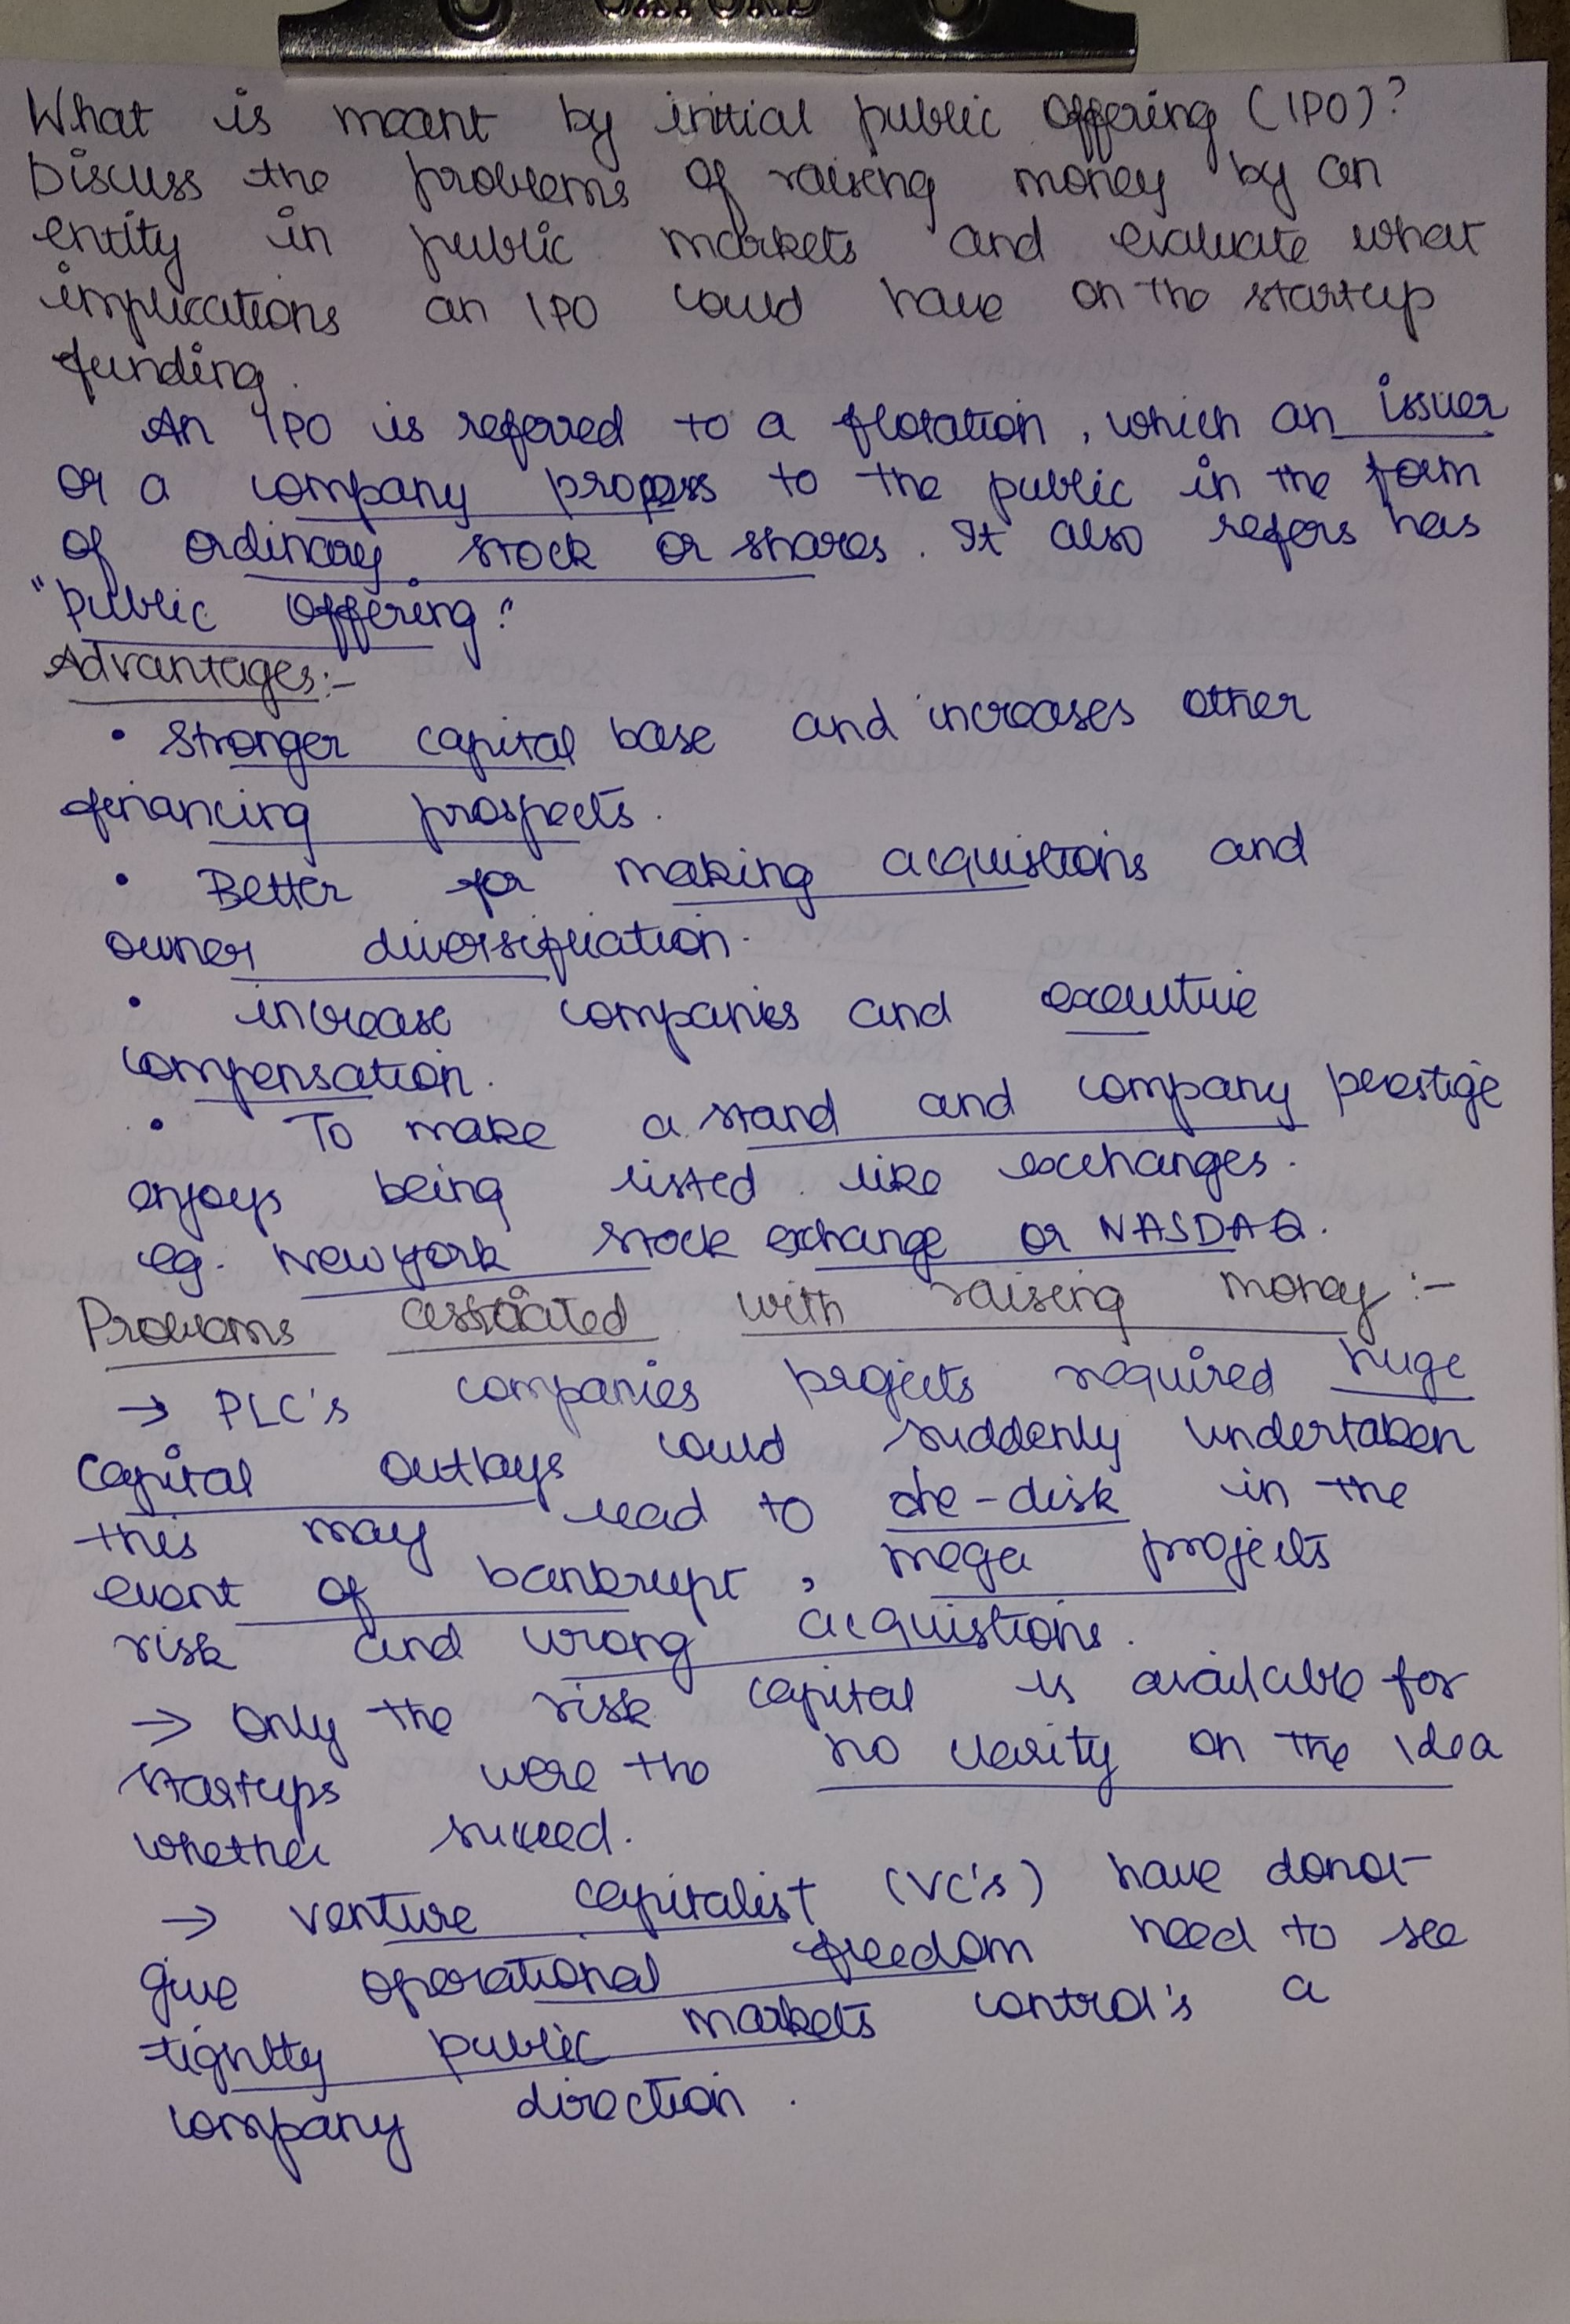 OXFORD
What is meant by initial public offering (IPO)?
Discuss the problems of raising money by an
entity in public markets and evaluate what
implications an IPO could have on the startup
funding.
An IPO is referred to a flotation, which an issuer
or a company proposs to the public in the form
of ordinary stock or shares. It also refers has
"public offering."
Advantages:-
• Stronger capital base and increases other
financing prospects.
• Better for making acquistions and
owner diversification.
• increase companies and executive
compensation.
• To make a stand and company perstige
enjoys being listed like exchanges.
eg. Newyork stock exchange or NASDAQ.
Problems associated with raising money:-
→ PLC's companies projects required huge
capital outlays could suddenly undertaken
this may lead to de-disk in the
event of bankrupt, mega projects
risk and wrong acquistions.
→ Only the risk capital is available for
startups were the no clarity on the idea
whether succeed.
→ venture capitalist (VC's) have donot
give operational freedom need to see
tightly public markets control's a
company direction.